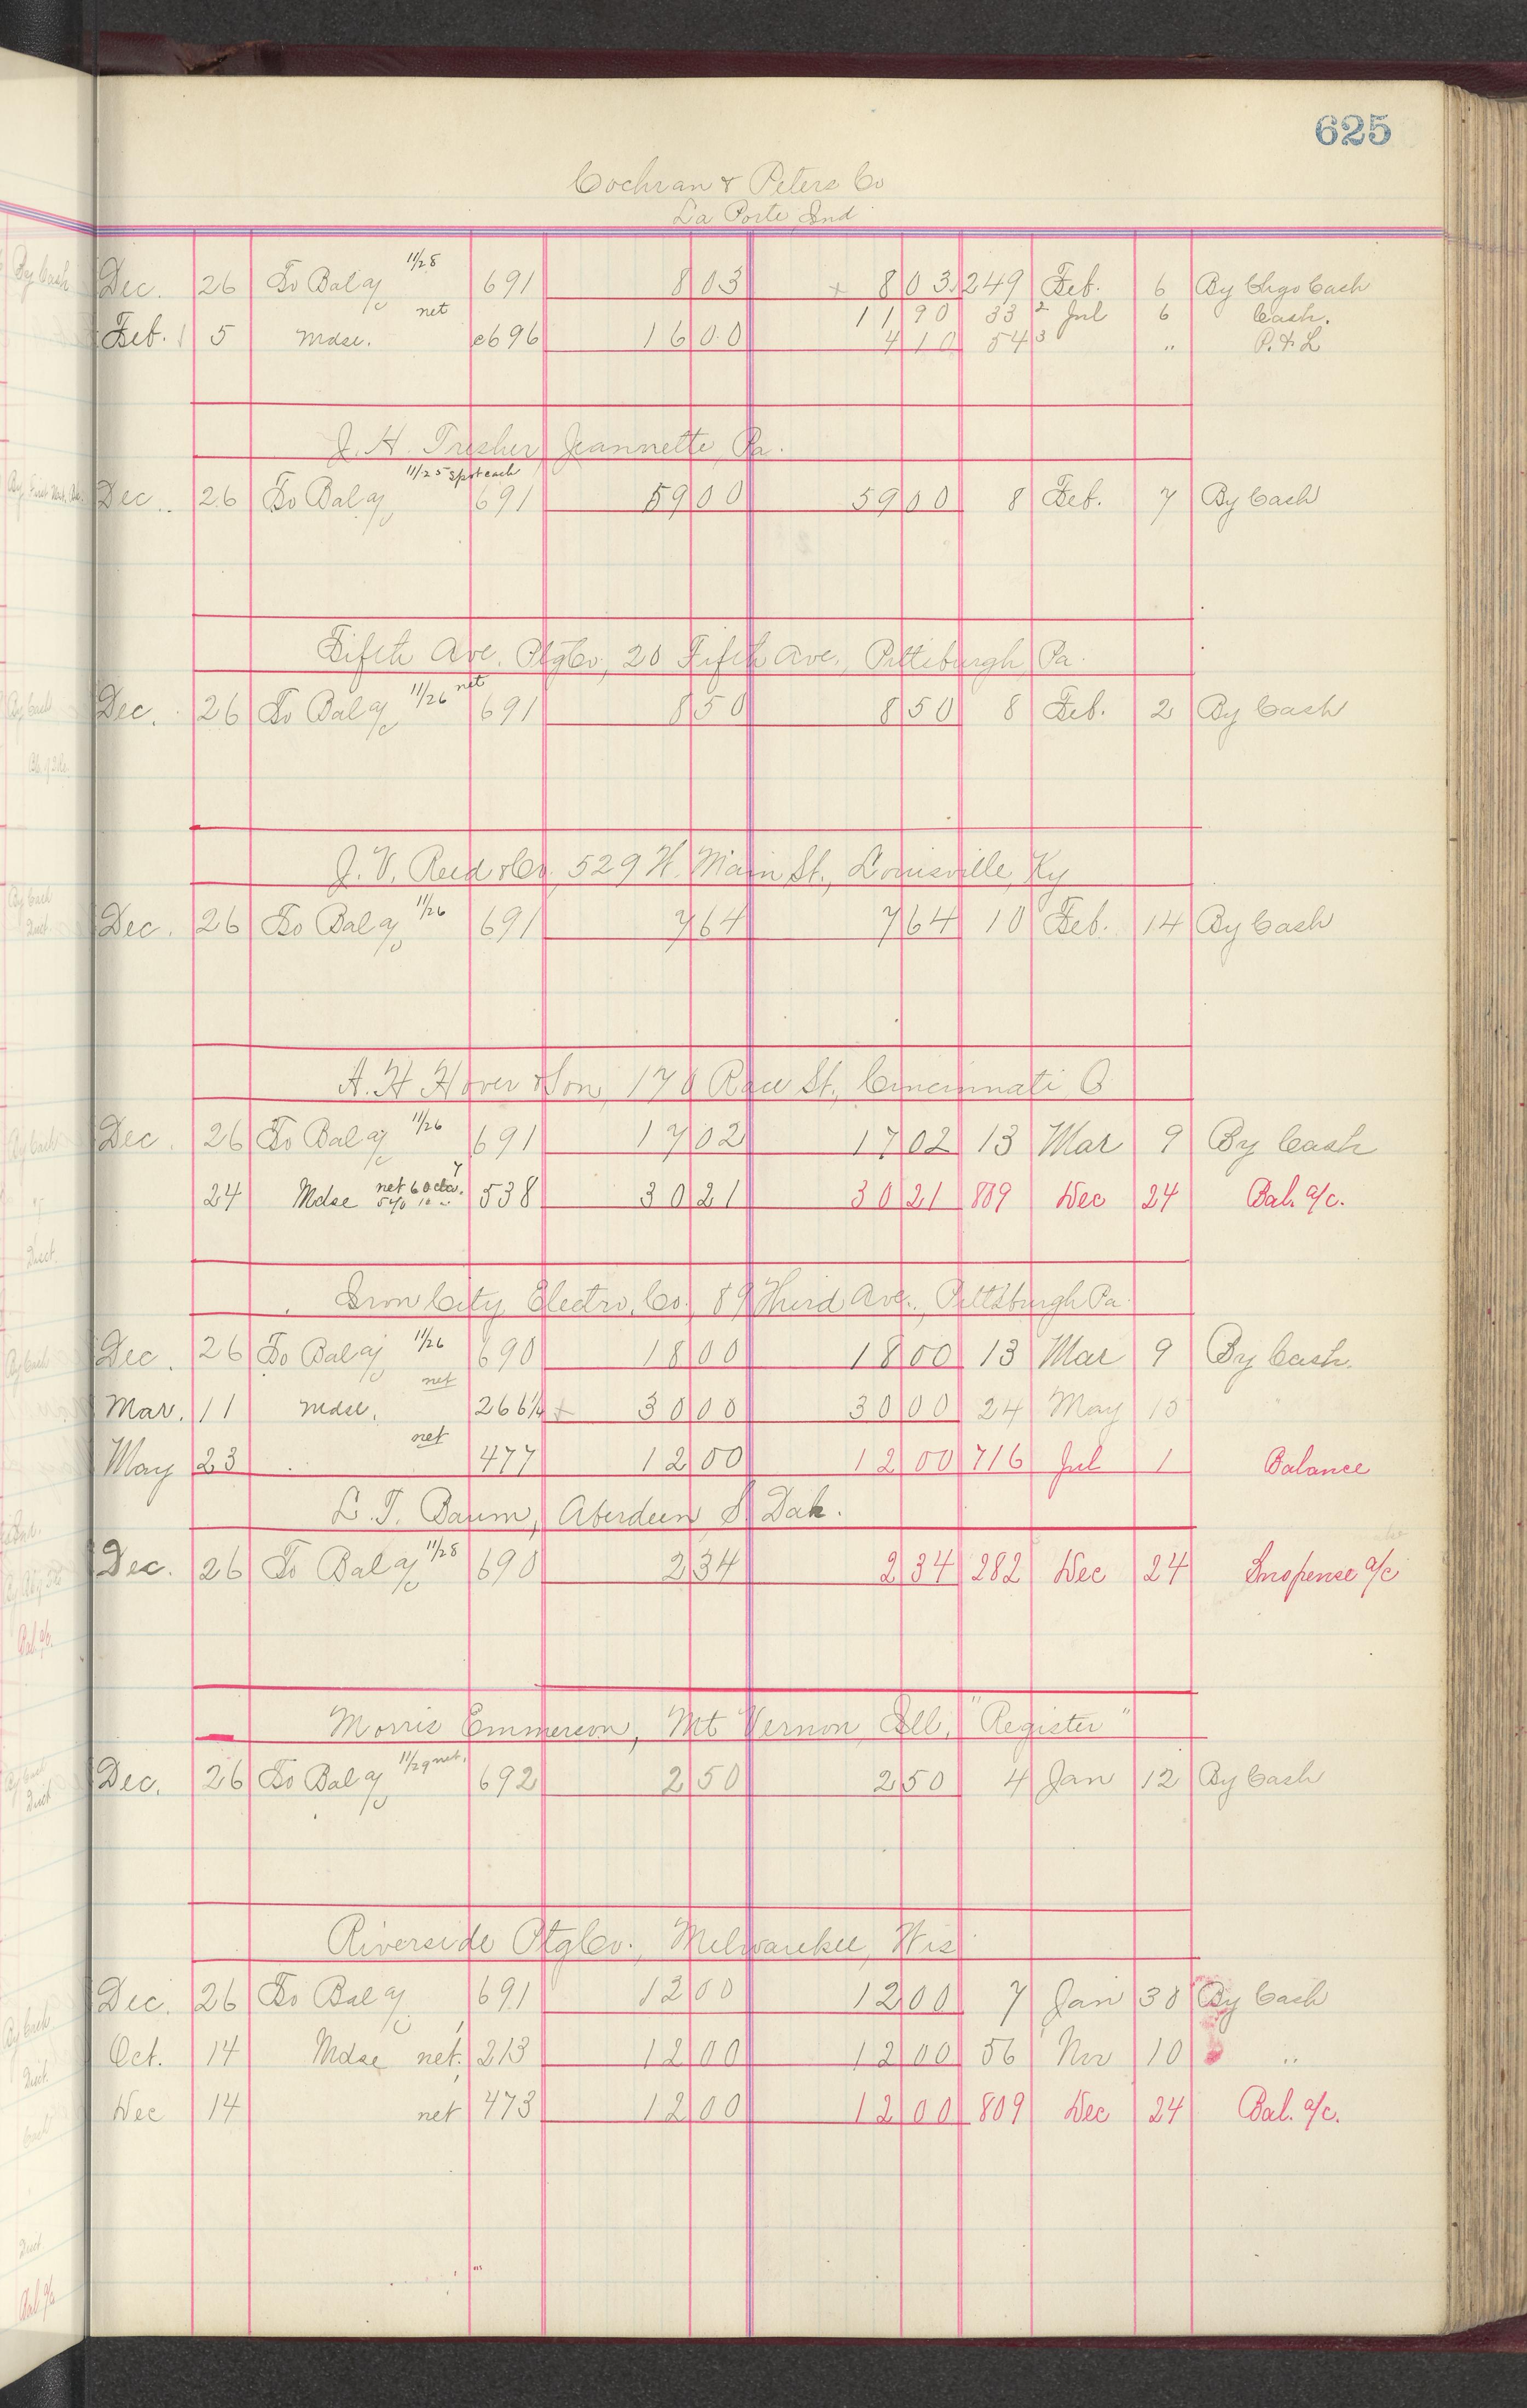 625
Cochran & Peters Co
La Porte Ind
Dec. 26 To Bal a/c 11/28 691 8 03 + 8 03 249 Feb. 6 By Chgo Cash
net 11 90 33 2 Jul 6 Cash.
Feb. 5 Mdse. c696 16 00 4 10 54 3 " P. & L
J. H. Tresher Jeannette, Pa.
Dec. 26 To Bal a/c 11/25 spot cash 691 59 00 59 00 8 Feb. 7 By Cash
Fifth Ave. Ptg Co., 20 Fifth Ave., Pittsburgh Pa.
Dec. 26 To Bal a/c 11/26 net 691 8 50 8 50 8 Feb. 2 By Cash
J. V. Reed & Co. 529 W. Main St., Louisville, Ky
Dec. 26 To Bal a/c 11/26 691 7 64 7 64 10 Feb. 14 By Cash
A. H. Hover & Son, 170 Race St., Cincinnati O
Dec. 26 To Bal a/c 11/26 691 17 02 17 02 13 Mar 9 By Cash
24 Mdse net 60 5% 10 " 538 30 21 30 21 809 Dec 24 Bal. a/c.
Iron City Electro. Co., 89 Third Ave., Pittsburgh Pa.
Dec. 26 To Bal a/c 11/26 690 18 00 18 00 13 Mar 9 By Cash.
Mar. 11 Mdse. net 266¼ + 30 00 30 00 24 May 15
May 23 net 477 12 00 12 00 716 Jul 1 Balance
L. T. Baum, Aberdeen S. Dak.
Dec. 26 To Bal a/c 11/28 690 2 34 2 34 282 Dec 24 Suspense a/c
Morris Emmerson, Mt Vernon Ill, "Register"
Dec. 26 To Bal a/c 11/29 net. 692 2 50 2 50 4 Jan 12 By Cash
Riverside Ptg Co., Milwaukee, Wis
Dec. 26 To Bal a/c 691 12 00 12 00 7 Jan 30 By Cash
Oct. 14 Mdse net. 213 12 00 12 00 56 Nov 10 "
Dec 14 net 473 12 00 12 00 809 Dec 24 Bal. a/c.